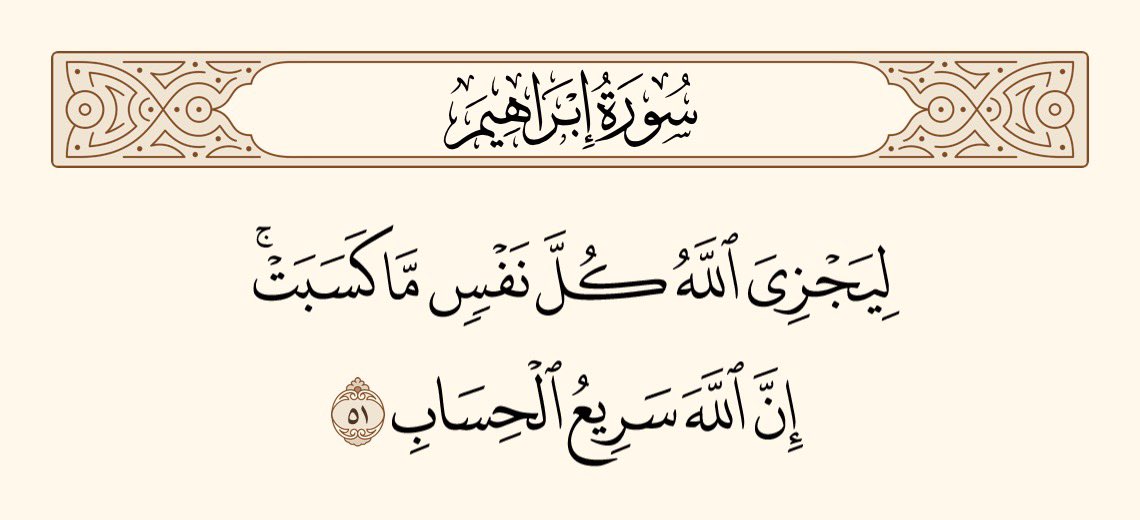 سُورَةُ إِبْرَاهِيمَ
لِيَجْزِىَ ٱللَّهُ كُلَّ نَفْسٍ مَّا كَسَبَتْ ۚ
إِنَّ ٱللَّهَ سَرِيعُ ٱلْحِسَابِ ٥١